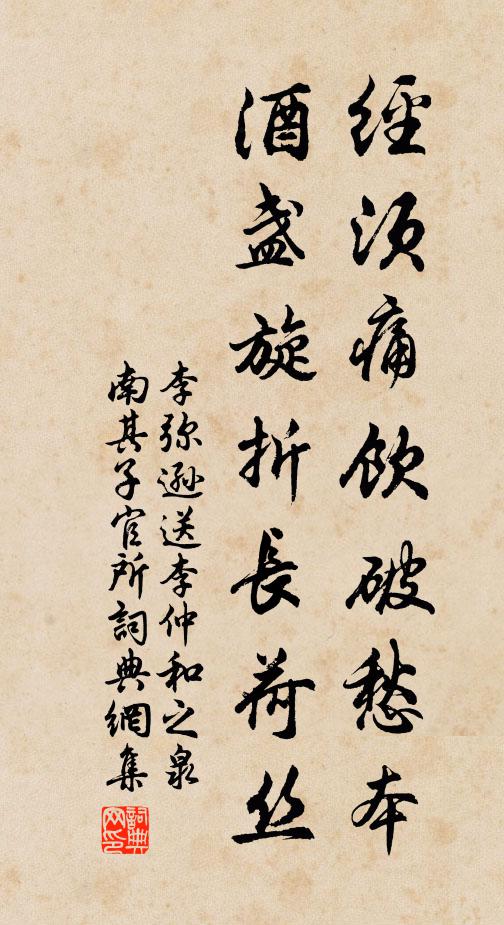 經須痛飲破愁本
酒盞旋折長荷丝
李弥遜送李仲和之泉
南其子官所詞典網集
詞典网印